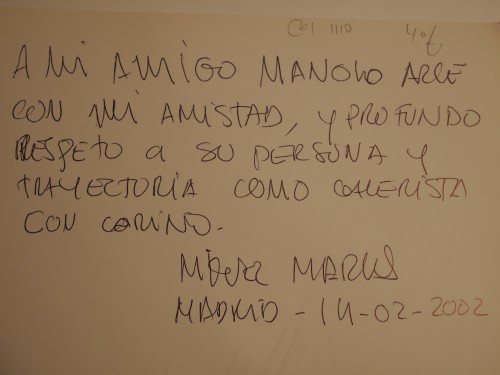 A MI AMIGO MANOLO ARCE
CON MI AMISTAD, Y PROFUNDO
RESPETO A SU PERSONA Y
TRAYECTORIA COMO GALERISTA
CON CARINO.
MARCOS
MADRID - 14-02-2002